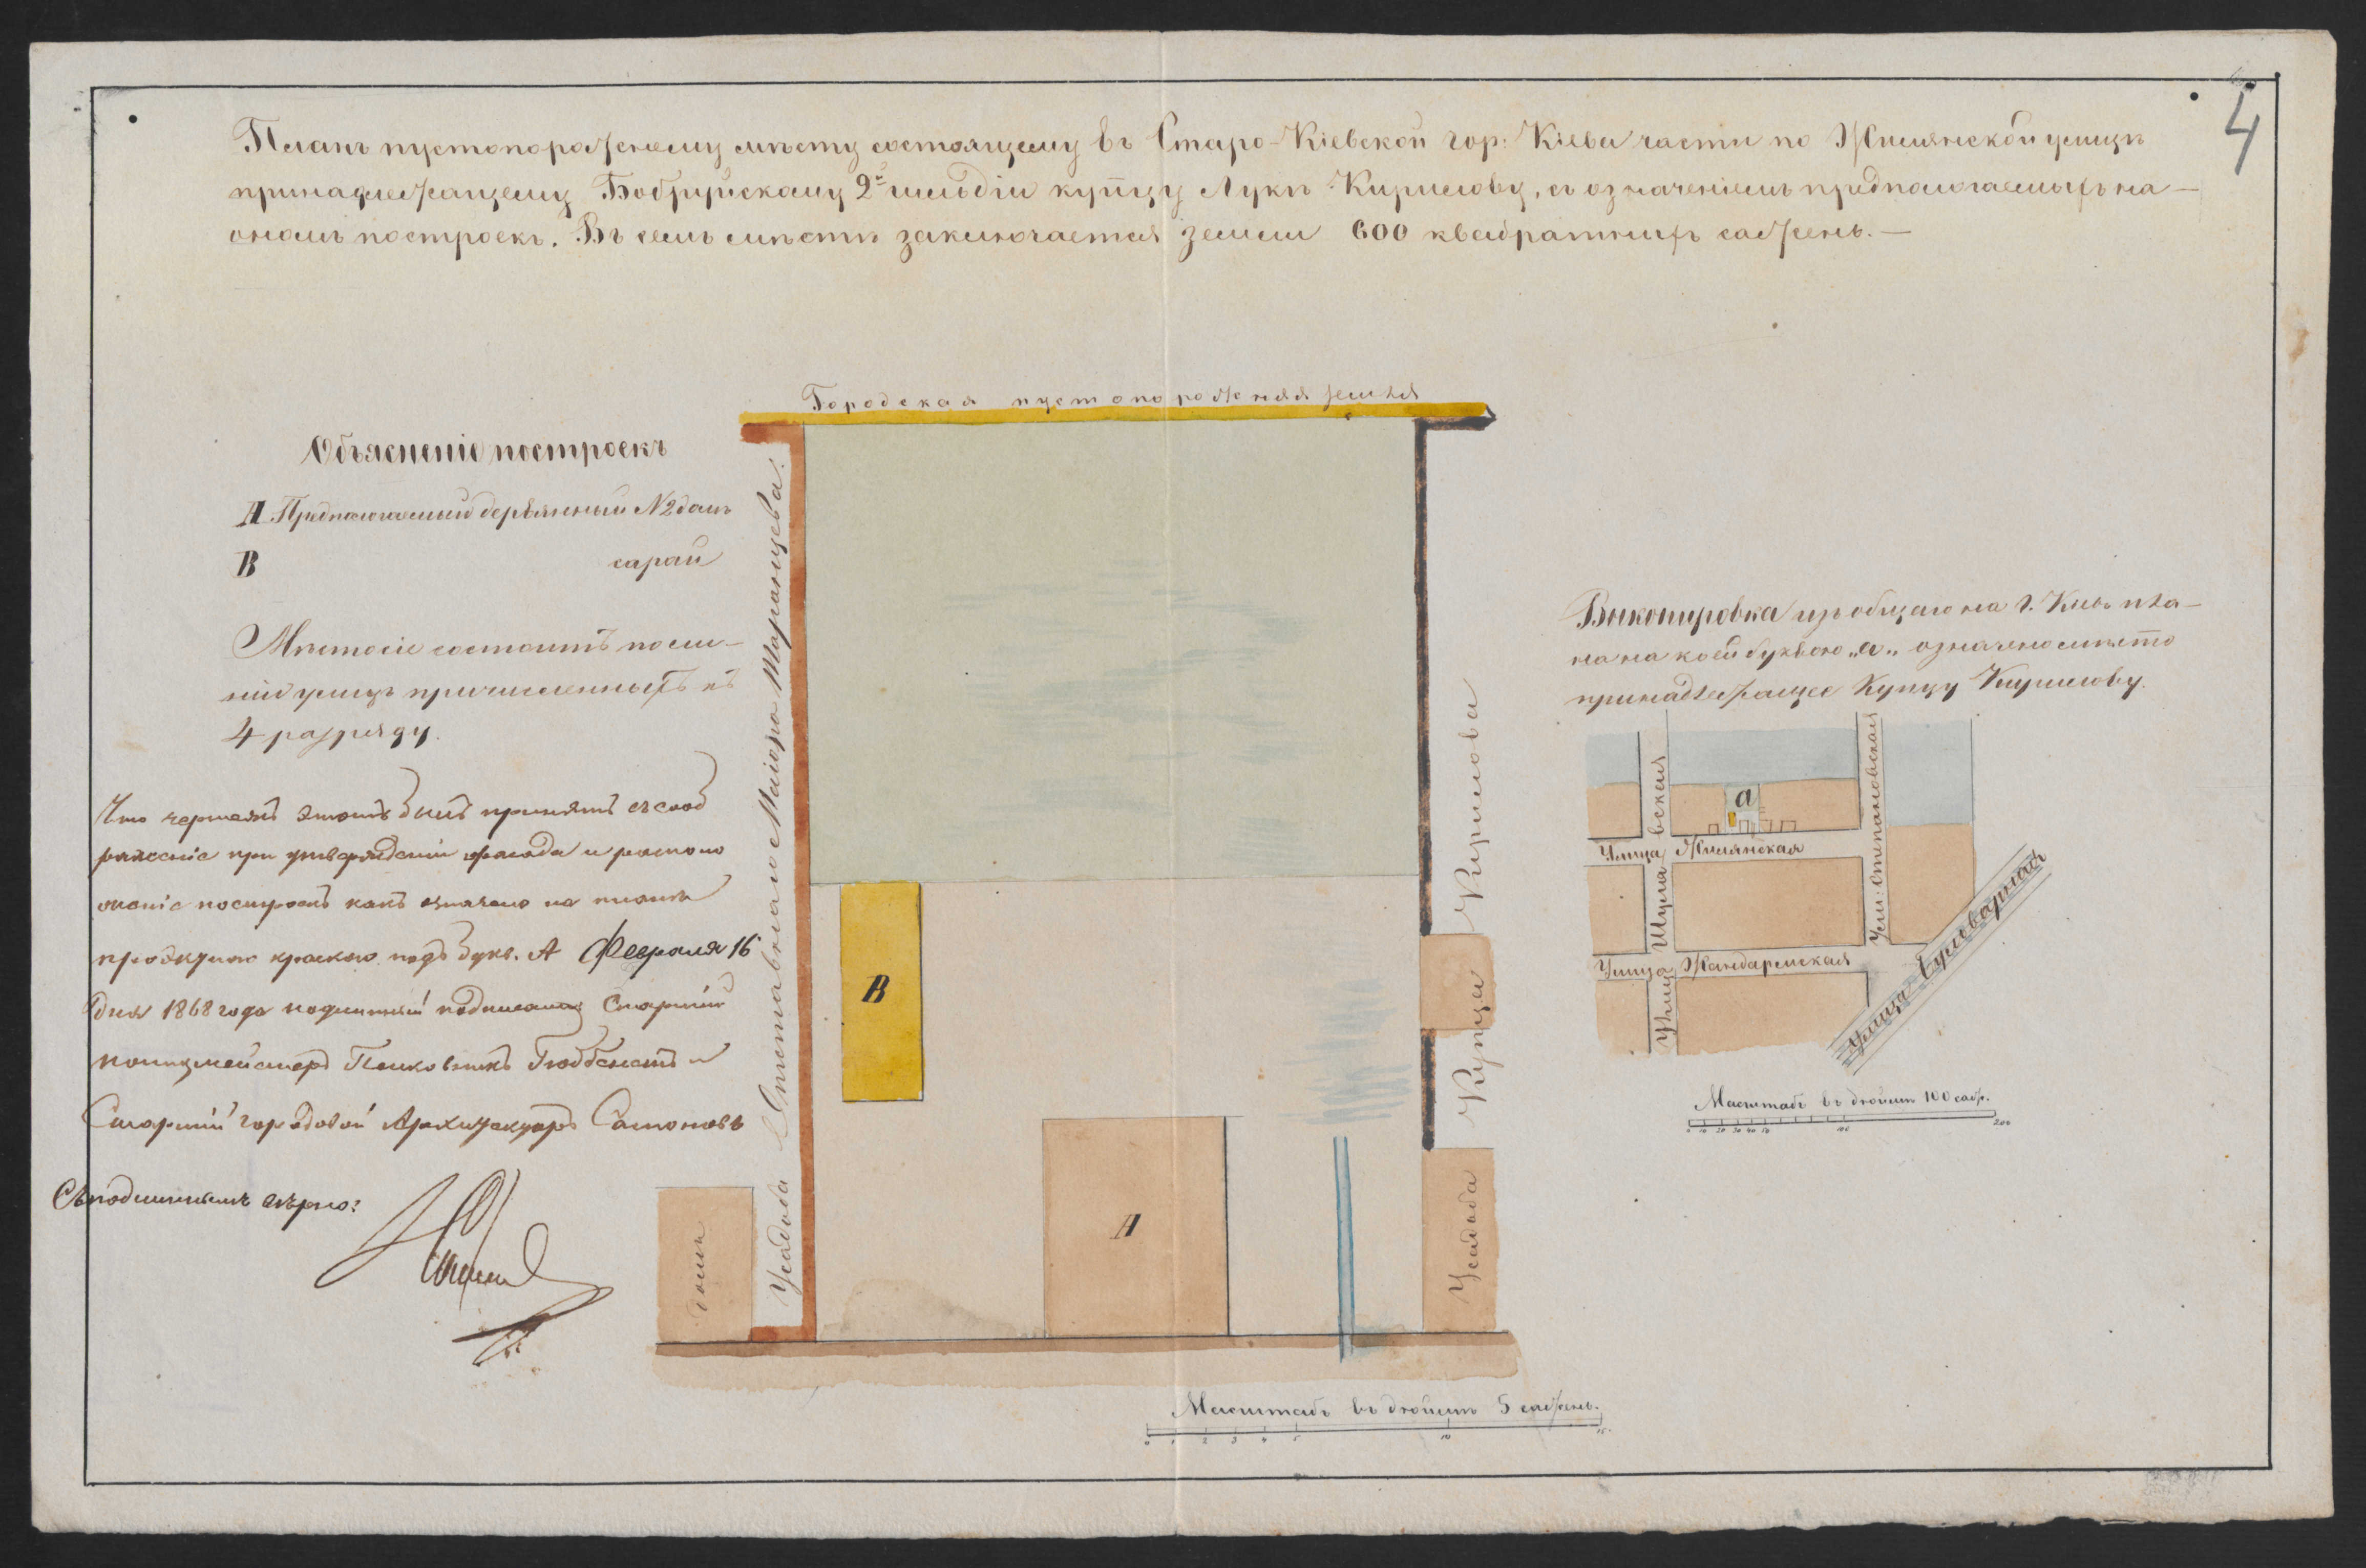 4
Планъ пустопорожнему мѣсту состоящему въ Старо-Кіевской гор: Кіева части по Жилянской улицѣ
принадлежащему Бобруйскому 2й гильдіи купцу Лукѣ Кирилову, съ означеніемъ предполагаемыхъ на-
ономъ построекъ. Въ семъ мѣстѣ заключается земли 600 квадратныхъ сажень.—
Городская пустопорожняя земля
Объясненіе построекъ
А Предполагаемый деревянный №2 домъ
В сарай
Мѣсто сіе состоитъ по ли-
ніи улицъ причисленныхъ къ
4 разряду.
Что чертежъ этотъ былъ принятъ въ сооб
раженіе при утвержденіи фасада и располо
женіе построекъ какъ означено на планѣ
прожектною краскою подъ букв. А Февраля 16
дня 1868 года подлинный подписали Старшій
полицмейстеръ Полковникъ и
Старшій городовой Архитекторъ
Съ подлиннымъ вѣрно:
домъ
Усадьба Отставнаго Маіора Таранцева.
В
А
Усадьба Купца Кирилова
Выкопировка изъ общаго на г. Кіевъ пла-
на на коей буквою „а„ означено мѣсто
принадлежащее Купцу Кирилову.
а
Улица Жилянская
Улица Жандармская
Улица Шулявская
Ули: Степановская
Улица Бульварная
Масштабъ въ дюймѣ 100 саж.
0 10 20 30 40 50 100 200
Масштабъ въ дюймѣ 5 сажень.
0 1 2 3 4 5 10 15